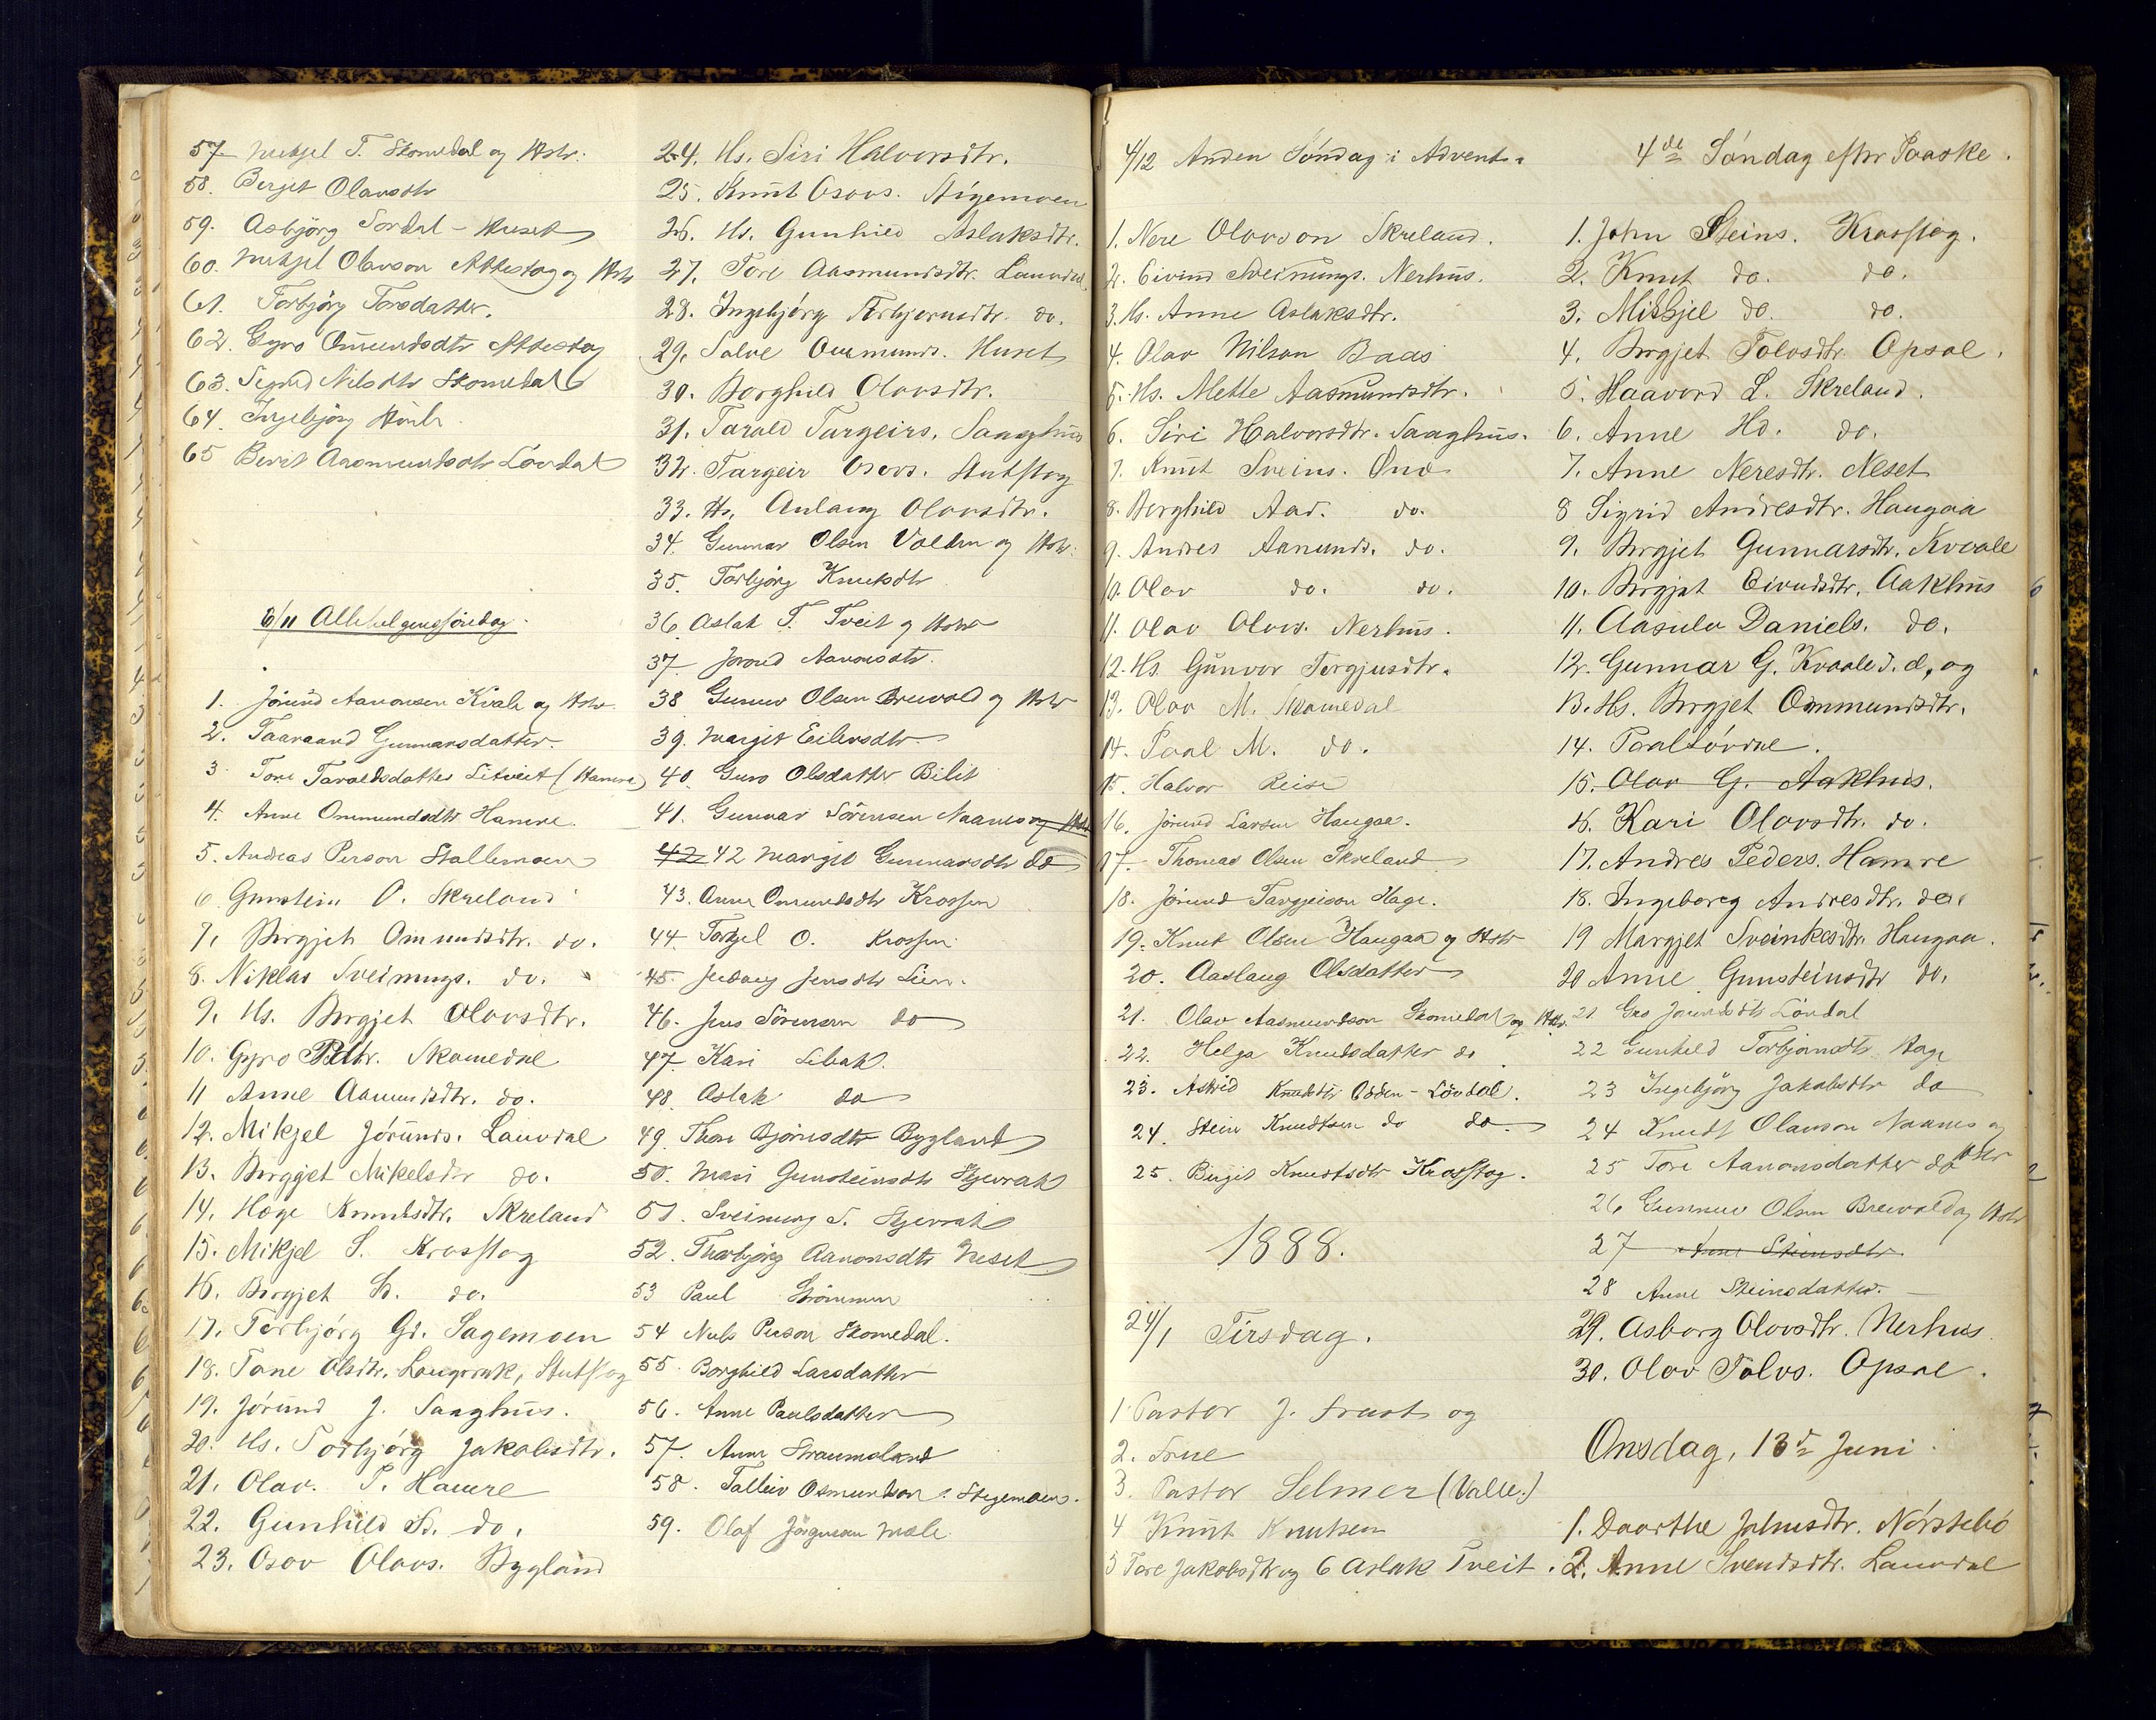 57 Mikjel T. Skomedal og Hstr.
58. Berget Olavsdtr
59. Asbjörg Tordal - Huset
60. Mikjel Olavson Attestog og Hstr
61. Torbjörg Torsdatter.
62. Gyro Omundsdtr Attestog
63. Sigrid Nilsdtr Skomedal
64. Ingebjörg
65 Berit Aasmundsdtr Lövdal
6/11 Allehelgensföndag.
1. Jörund Aanonsen Kvale og Hstr.
2. Taaraand Gunnarsdatter.
3. Tone Taraldsdatter Litveit (Hamre)
4. Anne Ommundsdtr Hamre.
5. Andreas Person Stallemoen
6. Gunstein O. Skreland
7. Borgjet Omundsdtr. do.
8. Niklas Sveinungs. do.
9. Hs. Borgjet Olovsdtr.
10. Gyro Pdtr. Skomedal
11 Anne Aanundsdtr. do.
12. Mikjel Jörunds. Lauvdal
13. Borgjet Mikelsdtr do.
14. Hæge Knutsdtr. Skreland
15. Mikjel S. Krosstog
16. Borgjet Sd. do.
17. Torbjörg Gd. Sagemoen
18. Tone Olsdtr. Langerak, Stutstog
19. Jörund J. Saaghus.
20. Hs. Torbjörg Jakobsdtr.
21. Olav. T. Hamre
22. Gunhild Sd. do.
23. Osov Olovs. Bygland
24. Hs. Siri Halvorsdtr.
25. Knut Osovs. Stigemoen
26. Hs. Gunhild Aslaksdtr.
27. Tore Aasmundsdtr. Lauvdal
28. Ingebjörg Torbjornsdtr. do.
29. Salve Ommunds. Huset
30. Borghild Olovsdtr.
31. Tarald Targeirs. Saaghus
32. Targeir Osovs. Stutstog
33. Hs. Aulaug Olovsdtr.
34. Gunnar Olsen Valden og Hstr.
35. Torbjörg Knutsdtr
36. Aslak T. Tveit og Hstr
37 Jorond Aanonsdtr.
38 Gunnar Olsen Breivold og Hstr
39. Margit Eilevsdtr.
40. Guro Olsdatter Bilit
41. Gunnar Sörensen Naanes og Hstr
42 42 Margit Gunnarsdtr do
43. Anne Omundsdtr Krossen
44 Torkjel O. Krossen
45. Jensdtr Lien.
46. Jens Sörensen do
47 Kari Libak.
48. Aslak do
49. Thore Bjornsdtr Bygland
50. Mari Gunsteinsdtr Skjevrak
51. Sveinung S. Skjevrak
52. Thorbjörg Aanonsdtr Neset
53 Paul Strömmen
54 Nils Person Skomedal.
55. Borghild Larsdatter
56. Anne Paulsdatter
57. Anne Straumsland
58. Tallew Osmundson. Stigemoen.
59. Olaf Jörgensen Mæle
4/12 Anden Söndag i Advent.
1. Nere Olovson Skreland.
2. Eivind Sveinungs. Nerhus.
3. Hs. Anne Aslaksdtr.
4. Olav Nilson Baas
5. Hs. Mette Aasmundsdtr.
6. Siri Halvorsdtr. Saaghus.
7. Knut Sveins. Ose
8. Borghild Aad. do.
9. Andres Aanunds. do.
10. Olav do. do.
11. Olav Olovs. Nerhus.
12. Hs. Gunvor Torgjusdtr.
13. Olav M. Skomedal
14. Paal M. do.
15. Halvor Reise
16. Jörund Larsen Haugaa.
17. Thomas Olsen Skreland
18. Jörund Targjeison Hage.
19. Knut Olsen Haugaa og Hstr
20. Aaslaug Olsdatter
21. Olav Aasmundson Skomedal og Hstr.
22. Helga Knudsdatter do
23. Astrid Knudsdtr Osden - Lövdal.
24. Stein Knudtsen do do
25. Birgit Knudtsdtr Krosstog.
1888.
24/1 Tirsdag.
1. Pastor J. Frust og
2. Frue
3. Pastor Selmer (Valle.)
4 Knut Knutsen
5 Tore Jakobsdtr og 6 Aslak Tveit.
4de Söndag efter Paaske.
1. John Steins. Krosstog.
2. Knut do. do.
3. Mikkjel do. do.
4. Borgjet Tolvsdtr. Opsal.
5. Haavord L. Skreland.
6. Anne Hd. do.
7. Anne Neresdtr. Neset
8 Sigrid Andresdtr. Haugaa
9. Borgjet Gunnarsdtr. Kvaale
10. Borgjet Eivindsdtr. Aakhus
11. Aasulv Daniels. do.
12. Gunnar G. Kvaale d. e. og
13. Hs. Borgjet Ommundsdtr.
14. Paal Lövdal.
15. Olav G. Aakhus.
16. Kari Olovsdtr. do.
17. Andres Peders. Hamre
18. Ingeborg Andresdtr. do.
19 Margjet Sveinkesdtr. Haugaa.
20 Anne Gunsteinsdtr do.
21. Gro Jorundsdtr Lövdal
22 Gunhild Torbjörndtr Hage
23 Ingebjörg Jakobsdtr do
24 Knudt Olavson Naanes og
25 Tore Aanonsdatter do Hstr
26 Gunnuv Olsen Breivold og Hstr
27 Anne Steinsdtr.
28 Anne Steinsdatter.
29. Asborg Olovsdtr. Nerhus
30. Olov Tolvs. Opsal.
Onsdag, 13de Juni
1. Doorthe Johnsdtr. Nörstebö
2. Anne Svendsdtr. Lauvdal